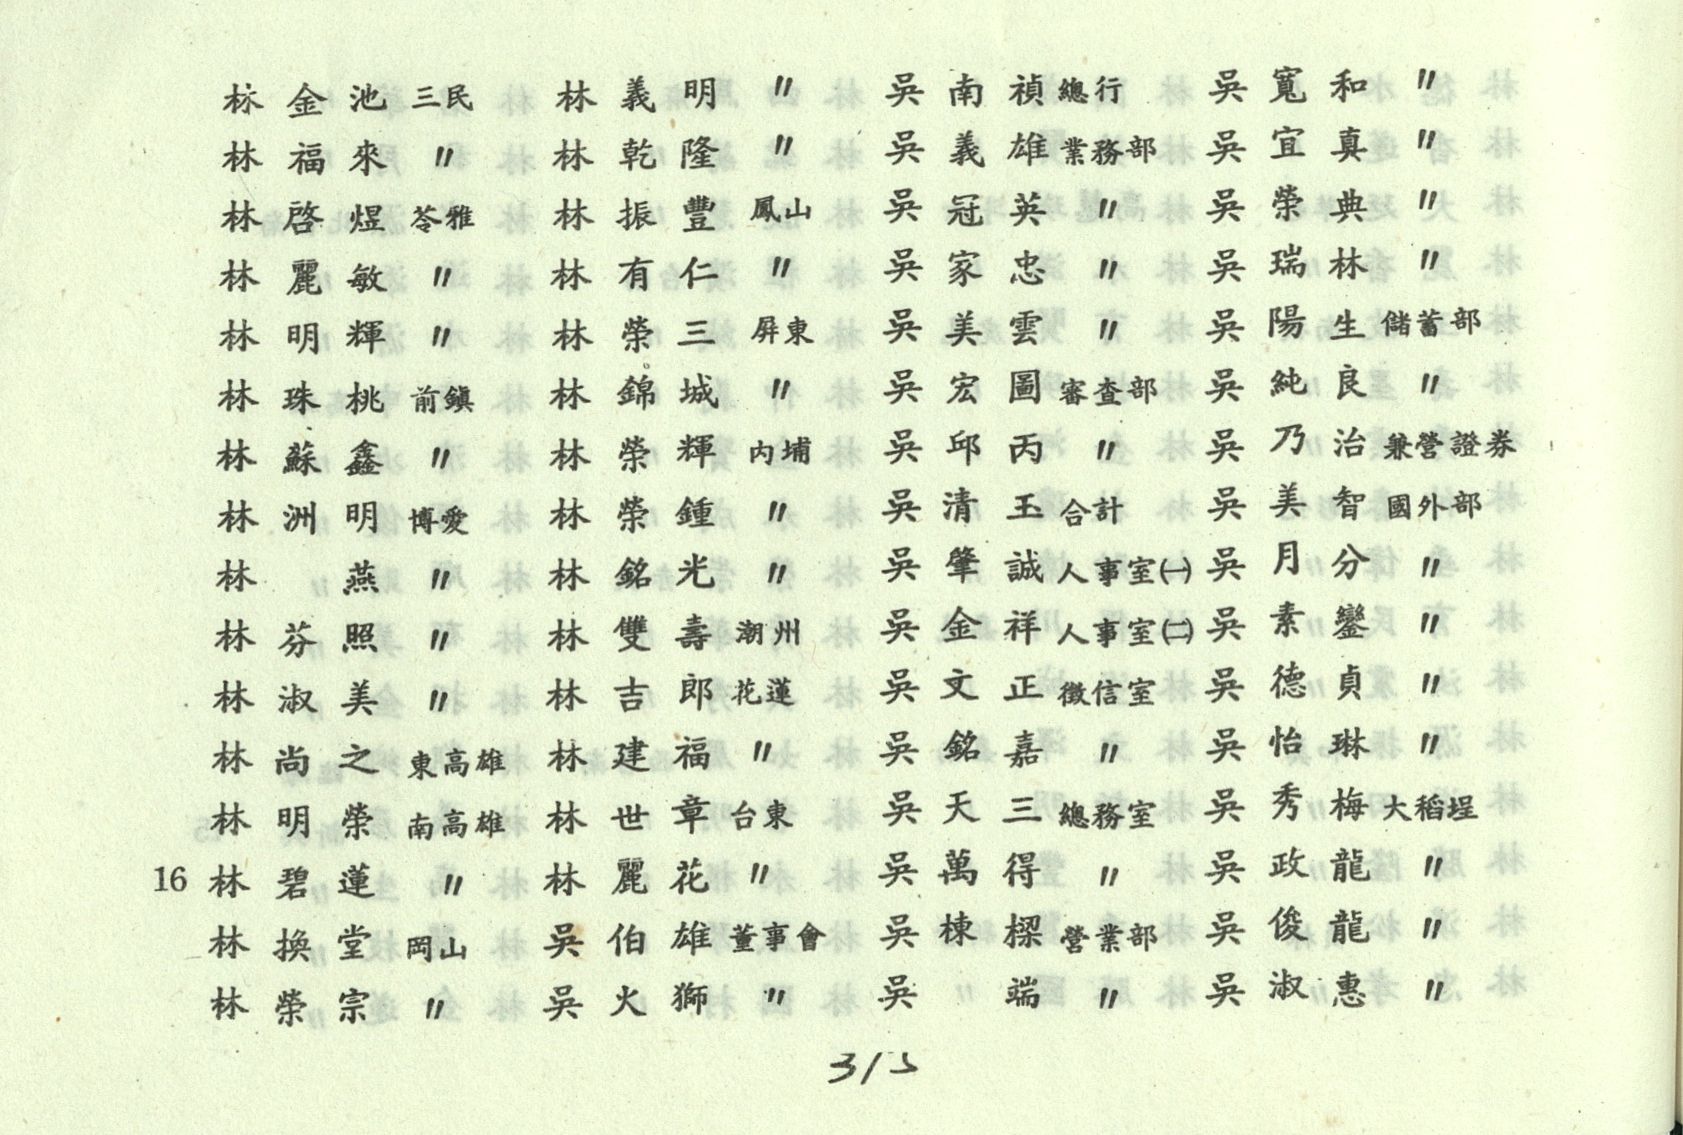 林金池 三民
林福來 〃
林啓煜 苓雅
林麗敏 〃
林明輝 〃
林珠桃 前鎮
林蘇鑫 〃
林洲明 博愛
林燕 〃
林芬照 〃
林淑美 〃
林尚之 東高雄
林明榮 南高雄
林碧蓮 〃
林換堂 岡山
林榮宗 〃
林義明 〃
林乾隆 〃
林振豐 鳳山
林有仁 〃
林榮三 屏東
林錦城 〃
林榮輝 內埔
林榮鍾 〃
林銘光 〃
林雙壽 潮州
林吉郎 花蓮
林建福 〃
林世章 台東
林麗花 〃
吳伯雄 董事會
吳火獅 〃
吳南禎 總行
吳義雄 業務部
吳冠英 〃
吳家忠 〃
吳美雲 〃
吳宏圖 審查部
吳邱丙 〃
吳清玉 合計
吳肇誠 人事室㈠
吳金祥 人事室㈡
吳文正 徵信室
吳銘嘉 〃
吳天三 總務室
吳萬得 〃
吳棟樑 營業部
吳端 〃
吳寬和 〃
吳宜真 〃
吳榮典 〃
吳瑞林 〃
吳陽生 儲蓄部
吳純良 〃
吳乃治 兼營證券
吳美智 國外部
吳月分 〃
吳素鑾 〃
吳德貞 〃
吳怡琳 〃
吳秀梅 大稻埕
吳政龍 〃
吳俊龍 〃
吳淑惠 〃
16